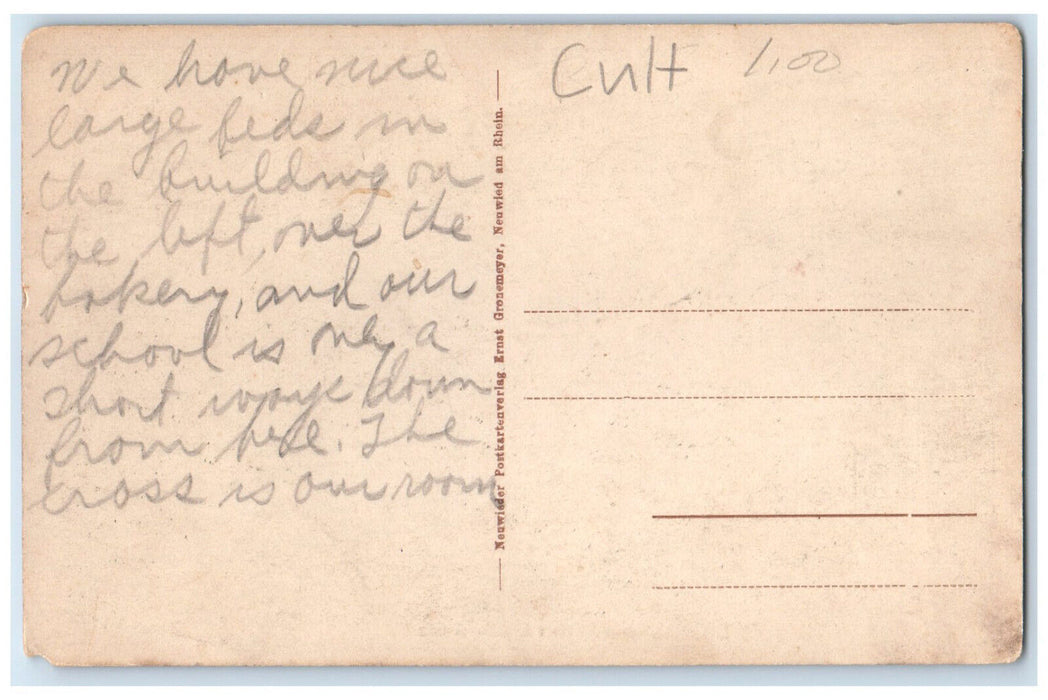 We have nice
large beds in
the building on
the left, over the
bakery, and our
school is only a
short ways down
from here. The
cross is our room
— Neuwieder Postkartenverlag Ernst Gronemeyer, Neuwied am Rhein. —
Cult 1.00